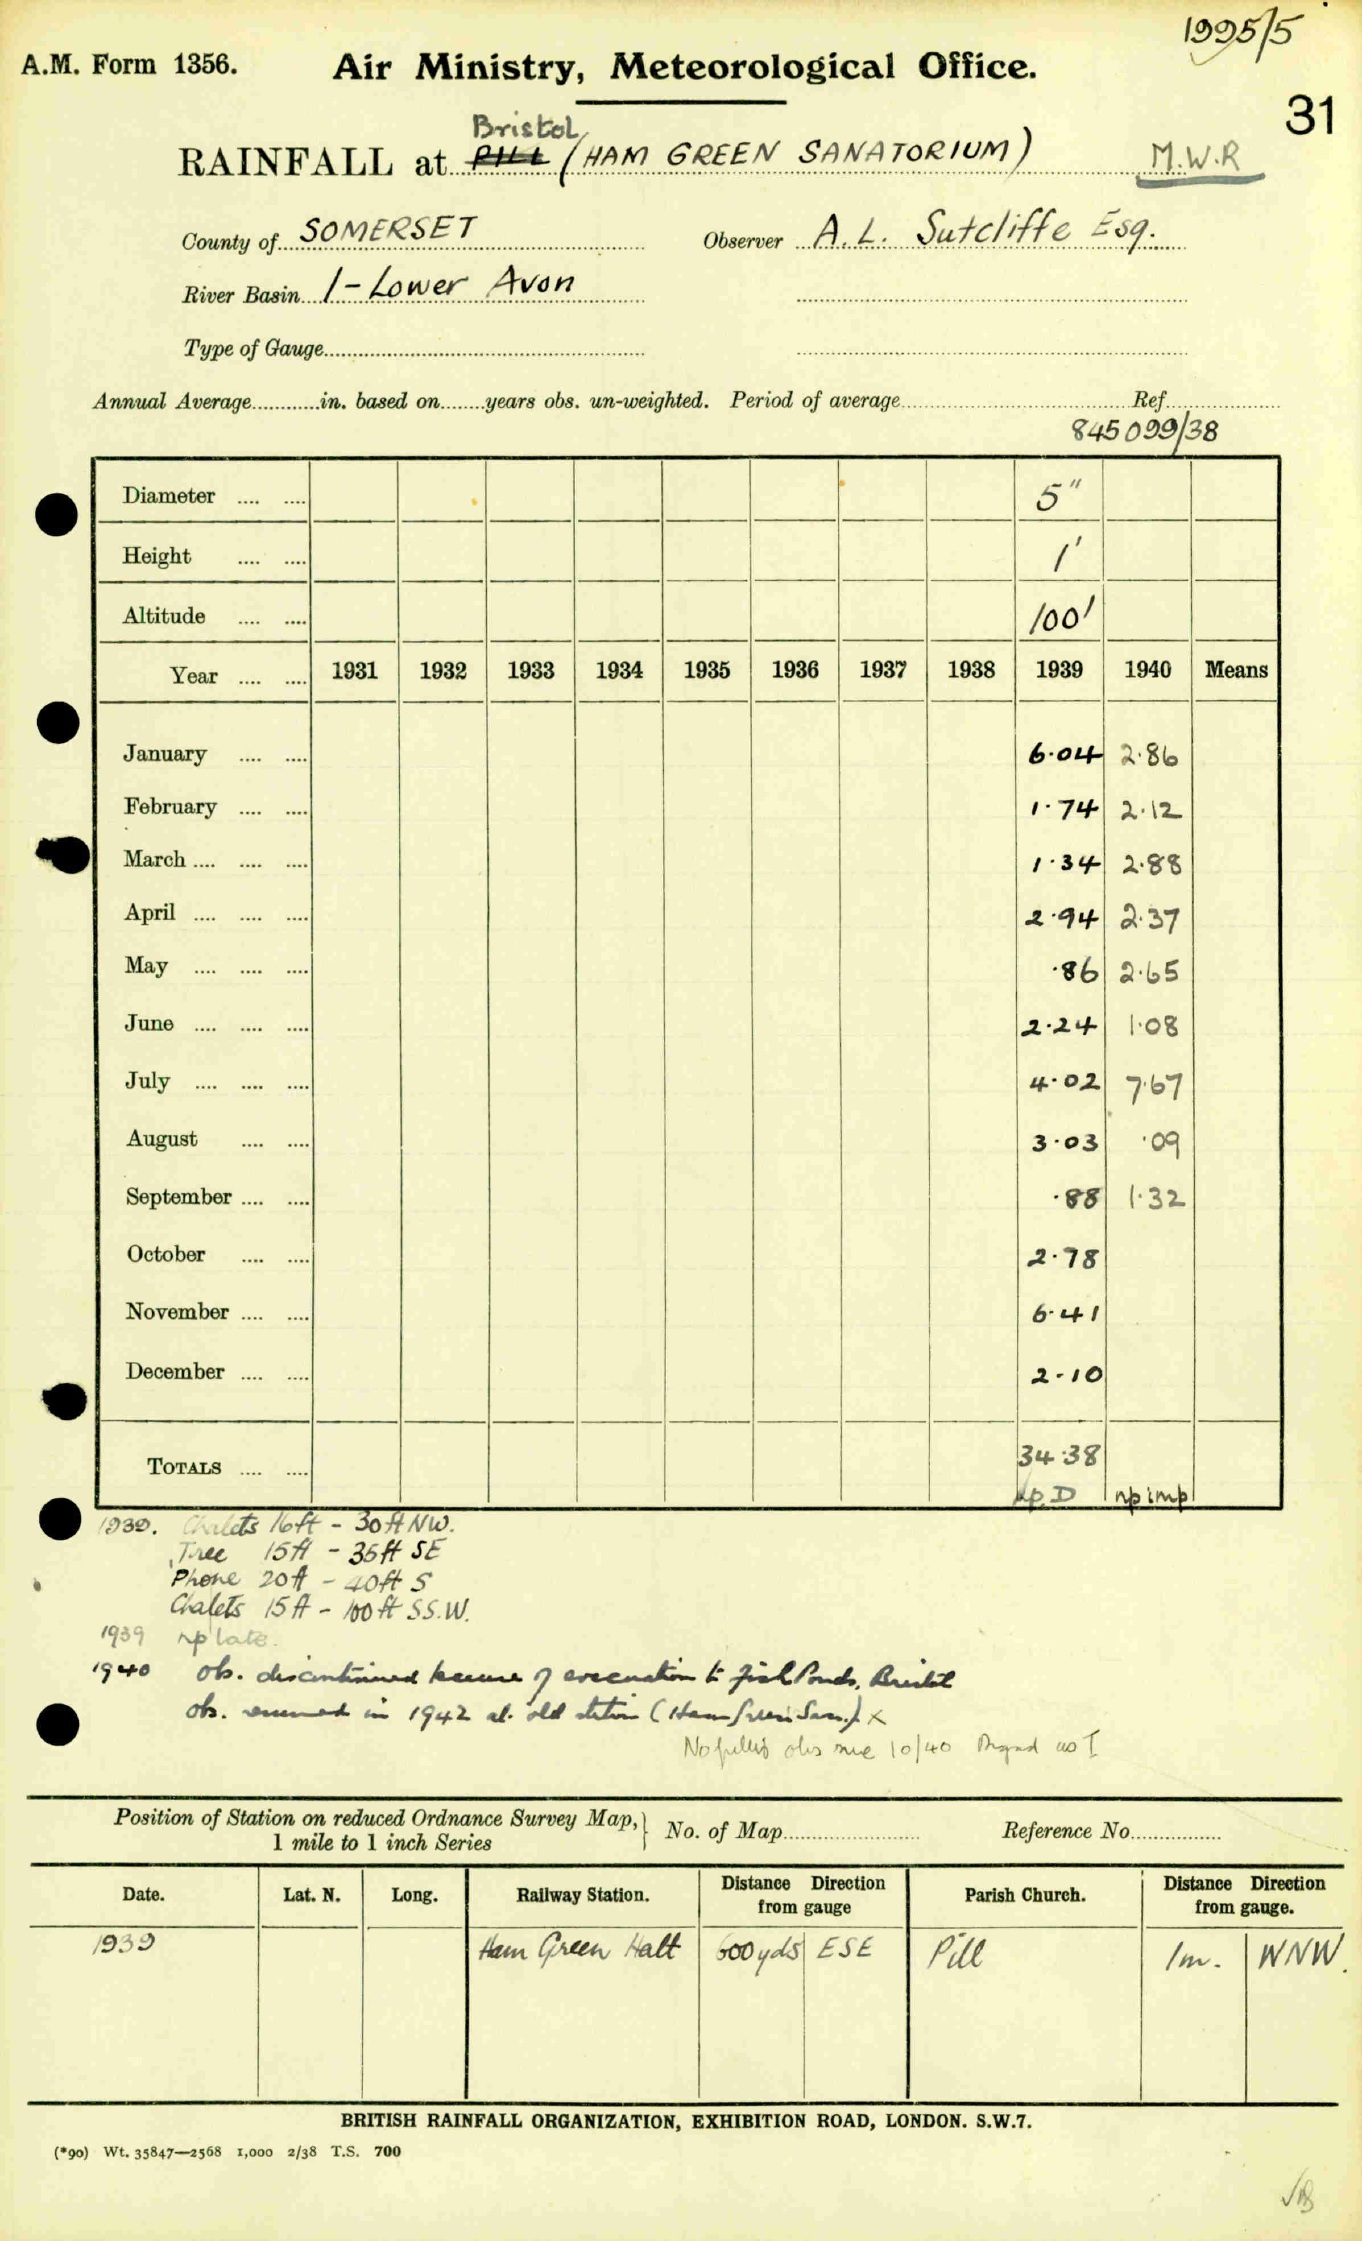 1995/5
A.M. Form 1356. Air Ministry, Meteorological Office.
31
Bristol
RAINFALL at PILL (HAM GREEN SANATORIUM) M.W.R
County of SOMERSET Observer A.L. Sutcliffe Esq.
River Basin 1-Lower Avon
Type of Gauge
Annual Average in. based on years obs. un-weighted. Period of average Ref
845099/38
Diameter 5"
Height 1'
Altitude 100'
Year 1931 1932 1933 1934 1935 1936 1937 1938 1939 1940 Means
January 6·04 2·86
February 1·74 2·12
March 1·34 2·88
April 2·94 2·37
May ·86 2·65
June 2·24 1·08
July 4·02 7·67
August 3·03 ·09
September ·88 1·32
October 2·78
November 6·41
December 2·10
TOTALS 34·38
np D np imp
1939. Chalets 16ft - 30ft NW.
Tree 15ft - 35ft SE
Phone 20ft - 40ft S
Chalets 15ft - 100ft SS.W.
1939 np late.
1940 ob. discontinued because of evacuation to Fish Ponds, Bristol
ob. resumed in 1942 at old station (Ham Green San.) x
obs 10/40 as I
Position of Station on reduced Ordnance Survey Map, } No. of Map Reference No.
1 mile to 1 inch Series
Date. Lat. N. Long. Railway Station. Distance Direction from gauge Parish Church. Distance Direction from gauge.
1939 Ham Green Halt 600yds ESE Pill 1m. WNW.
BRITISH RAINFALL ORGANIZATION, EXHIBITION ROAD, LONDON. S.W.7.
(*90) Wt. 35847—2568 1,000 2/38 T.S. 700